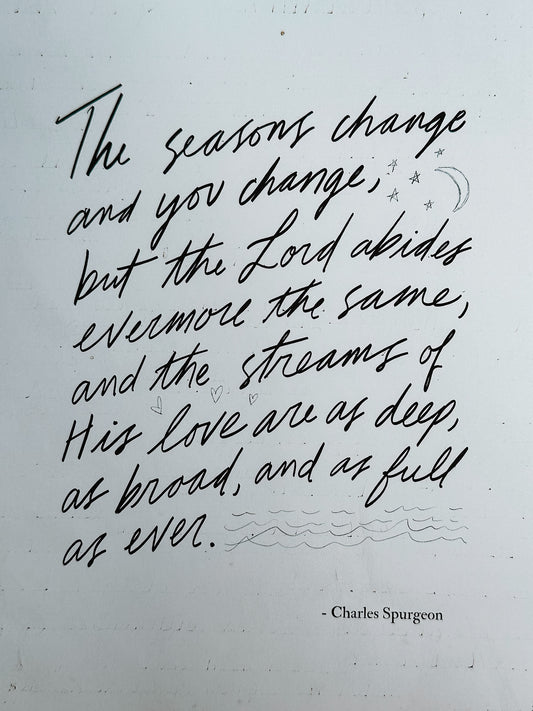 The seasons change
and you change,
but the Lord abides
evermore the same,
and the streams of
His love are as deep,
as broad, and as full
as ever.
- Charles Spurgeon